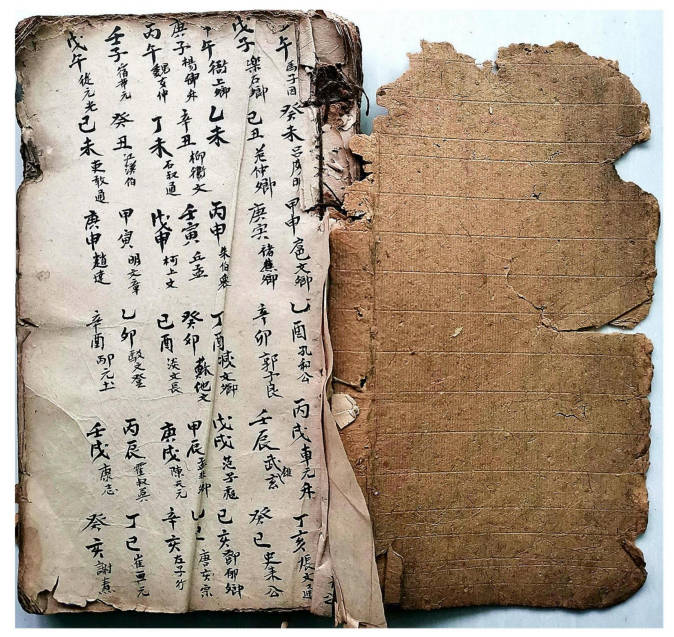 午 癸未 甲申 扈文卿 乙酉 孔和公 丙戌 車元升 丁亥 張文通
戊子 樂石卿 己丑 范仲卿 庚寅 褚燕卿 辛卯 郭子良 壬辰 武 玄 癸巳 史来公
甲午 衞上卿 乙未 丙申 朱伯衆 丁酉 臧文卿 戊戌 范子彪 己亥 鄧都卿
庚子 楊仲升 辛丑 柳衞文 壬寅 丘孟 癸卯 蘇他文 甲辰 孟非卿 乙巳 唐文宗
丙午 魏文仲 丁未 石叔通 戊申 柯上文 己酉 淡文長 庚戌 陳 元 辛亥 左子行
壬子 宿 元 癸丑 江漢伯 甲寅 明文章 乙卯 文登 丙辰 霍叔英 丁巳 崔亞元
戊午 從元光 己未 敢通 庚申 趙達 辛酉 邴元玉 壬戌 康志 癸亥 謝熹